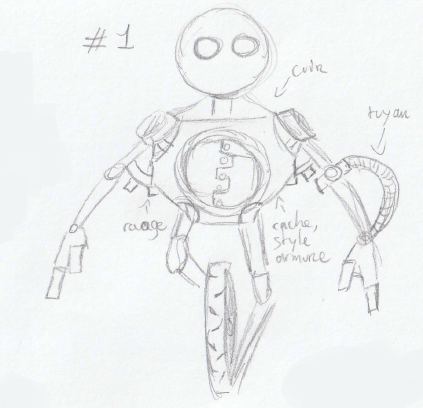 #1
cuir
tuyau
rouage
cache,
style
armure